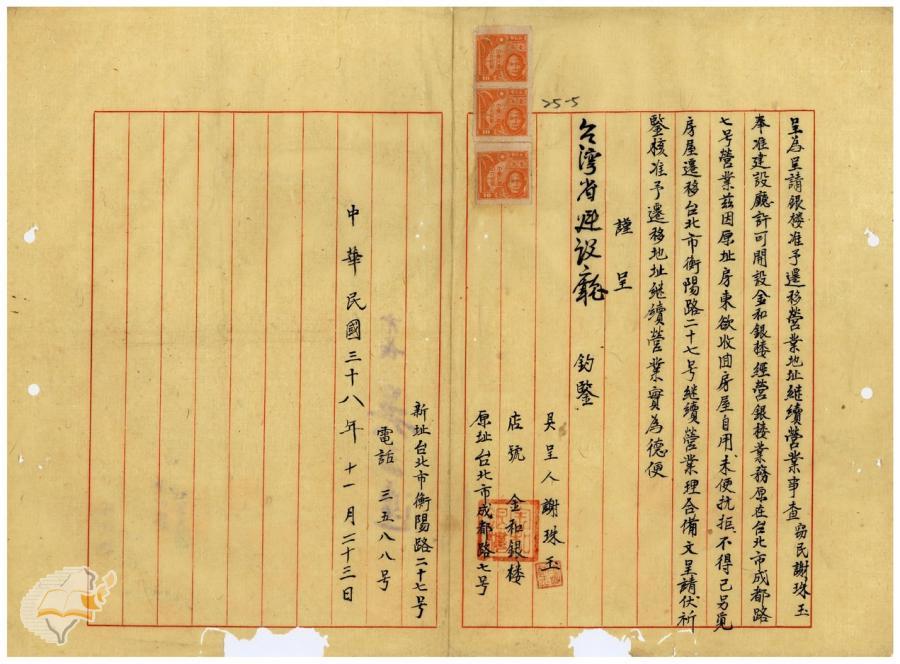 呈為呈請銀楼准予遷移營業地址継續營業事查 窃民謝珠玉
奉准建設廳許可開設金和銀楼經营銀楼業務原在台北市成都路
七号營業茲因原址房東欲收囬房屋自用未便抗拒不得已另覓
房屋遷移台北市衡陽路二十七号継續營業理合俻文呈請伏祈
鑒核准予遷移地址継續營業實為德便
謹呈
25-5
台湾省建設廳 鈞鑒
具呈人 謝珠玉
店號 金和銀楼
原址台北市成都路七号
新址台北市衡陽路二十七号
電話 三五八八号
中華民國三十八年十一月二十三日